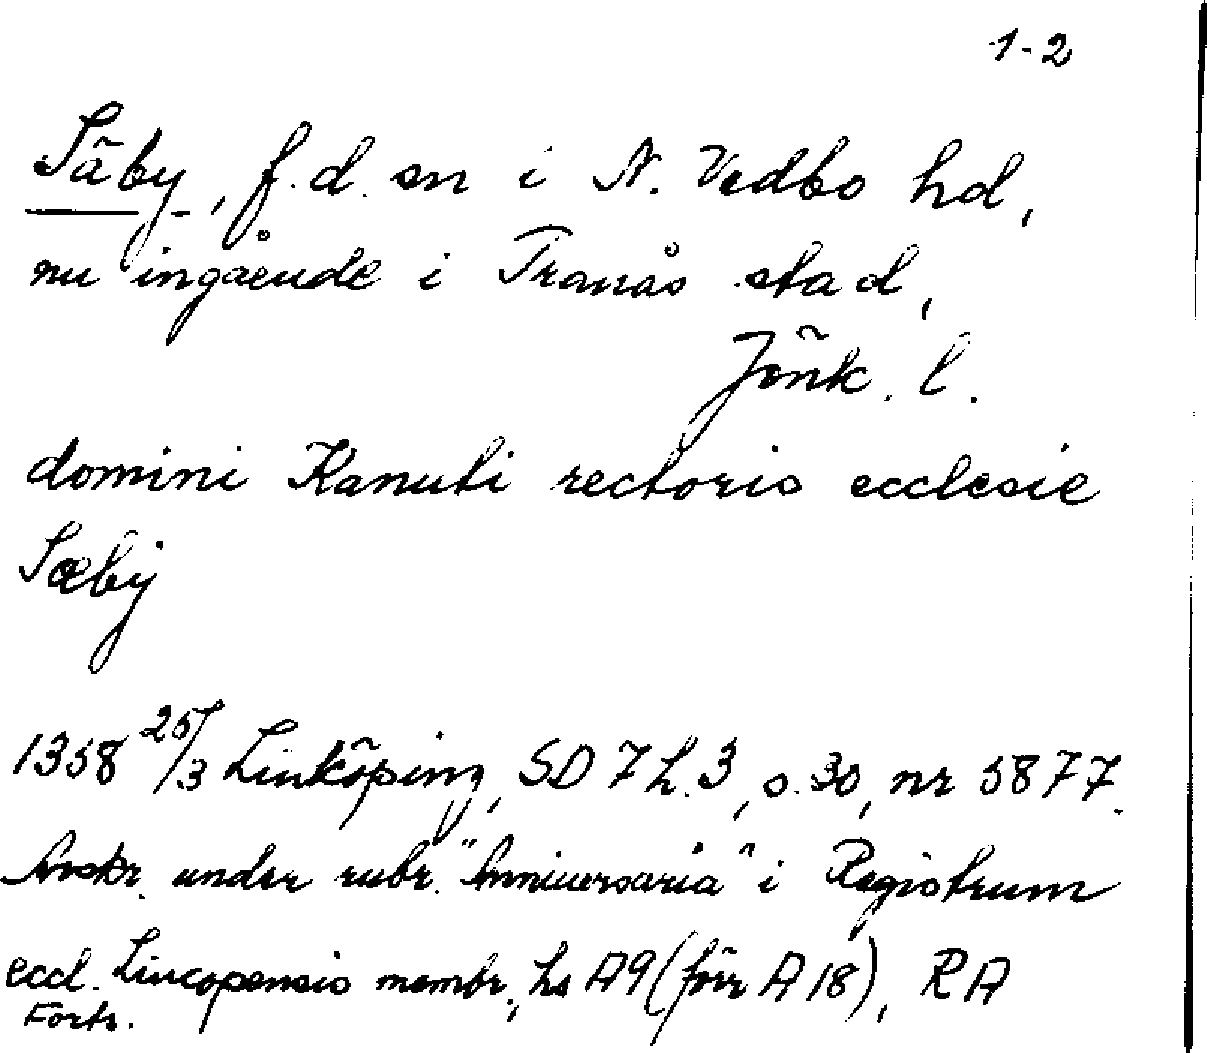 1-2
Säby, f.d. sn i N. Vedbo hd,
nu ingående i Tranås stad,
Jönk. l.
domini Kanuti rectoris ecclesie
Sæby
1358 25/3 Linköping, SD 7 h. 3, s. 30, nr 5877.
Avskr. under rubr. "Anniuersaria" i Registrum
eccl. Lincopensis membr., hs A9 (förr A 18), RA
Forts.